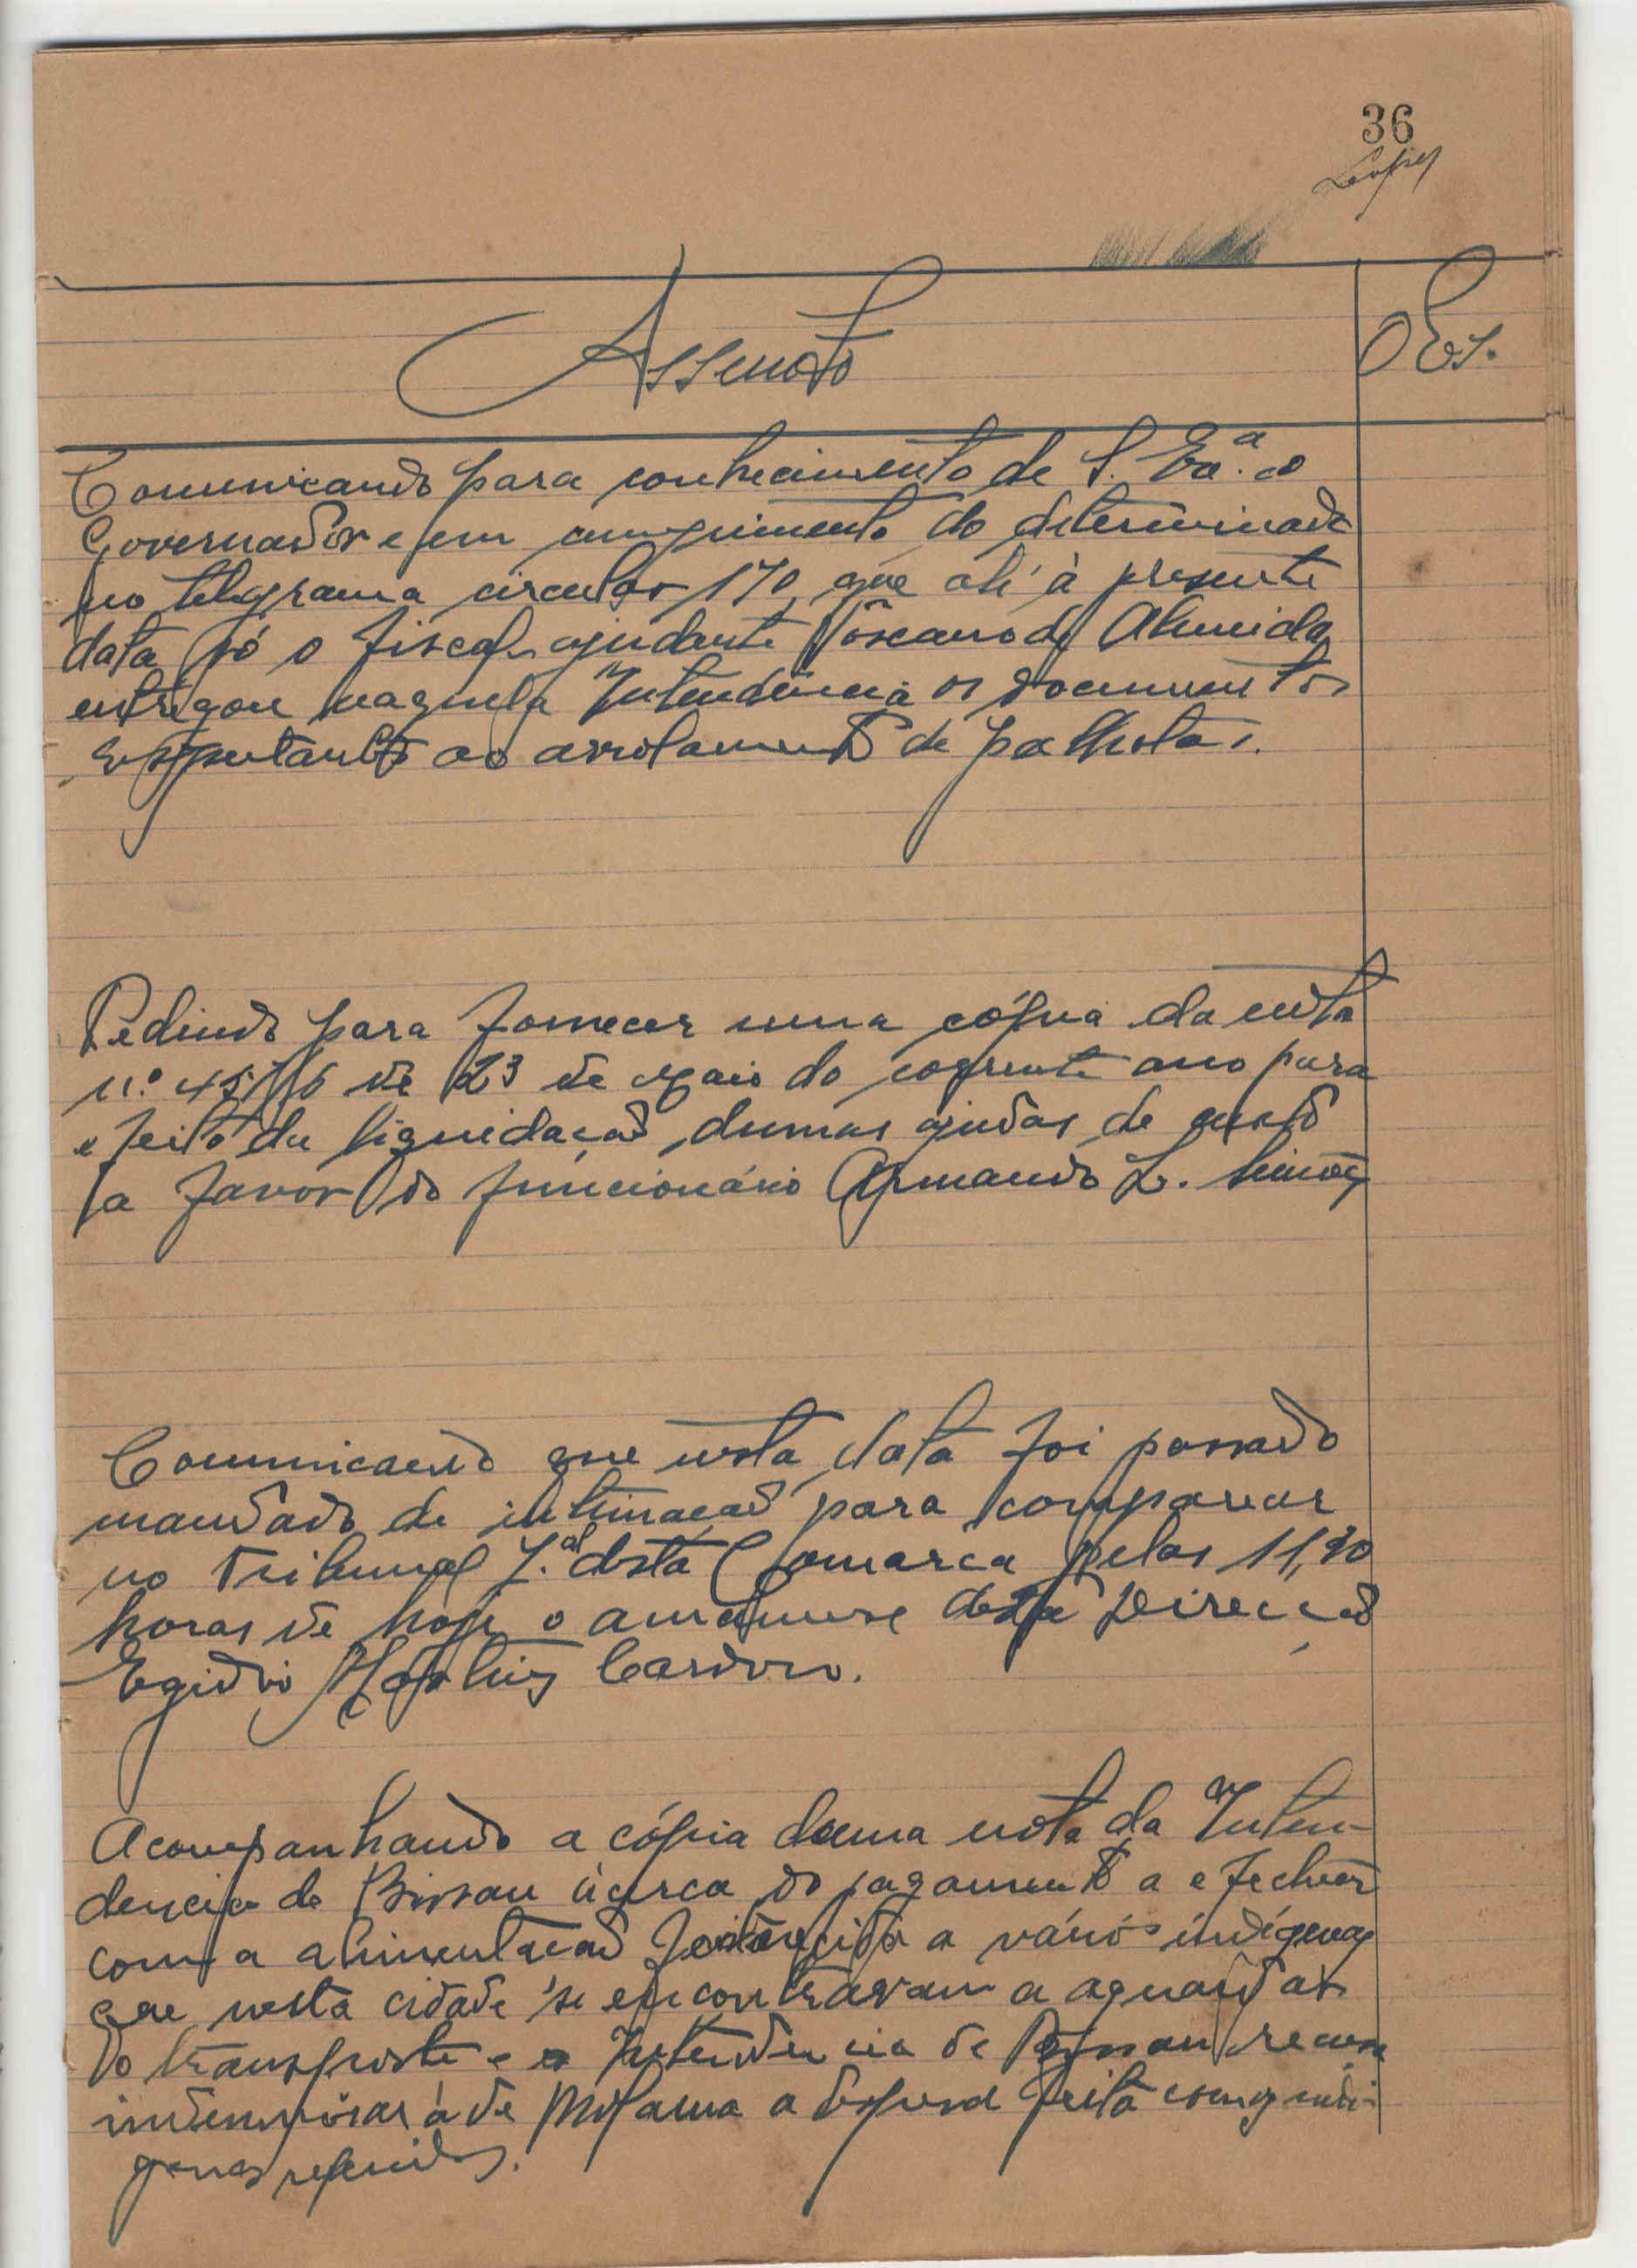 36
Lopes
Assunto
Obs.
Comunicando para conhecimento de S. Exª. o
Governador e em cumprimento do determinado
no telegrama circular 170, que até à presente
data só o fiscal ajudante Toscano de Almeida
entregou naquela Intendência os documentos
respeitantes ao arrolamento de palhotas.
Pedindo para fornecer uma cópia da nota
n.º de 23 de Maio do corrente ano para
efeito da liquidação dumas ajudas de custo
a favor do funcionário Armando L. Simões
Comunicando que nesta data foi passado
mandado de intimação para comparecer
no Tribunal J.al desta Comarca pelas 11,30
horas de hoje o amanuense desta Direcção
Egidio Martins Cardoso.
Acompanhando a cópia duma nota da Inten-
dencia de Bissau àcerca do pagamento a efectuar
com a alimentação a vários indígenas
que nesta cidade se encontravam a aguardar
o transporte e a Intendencia de Bissau recusa
indemnisar à de Bolama a despesa feita com os indi-
genas referidos.